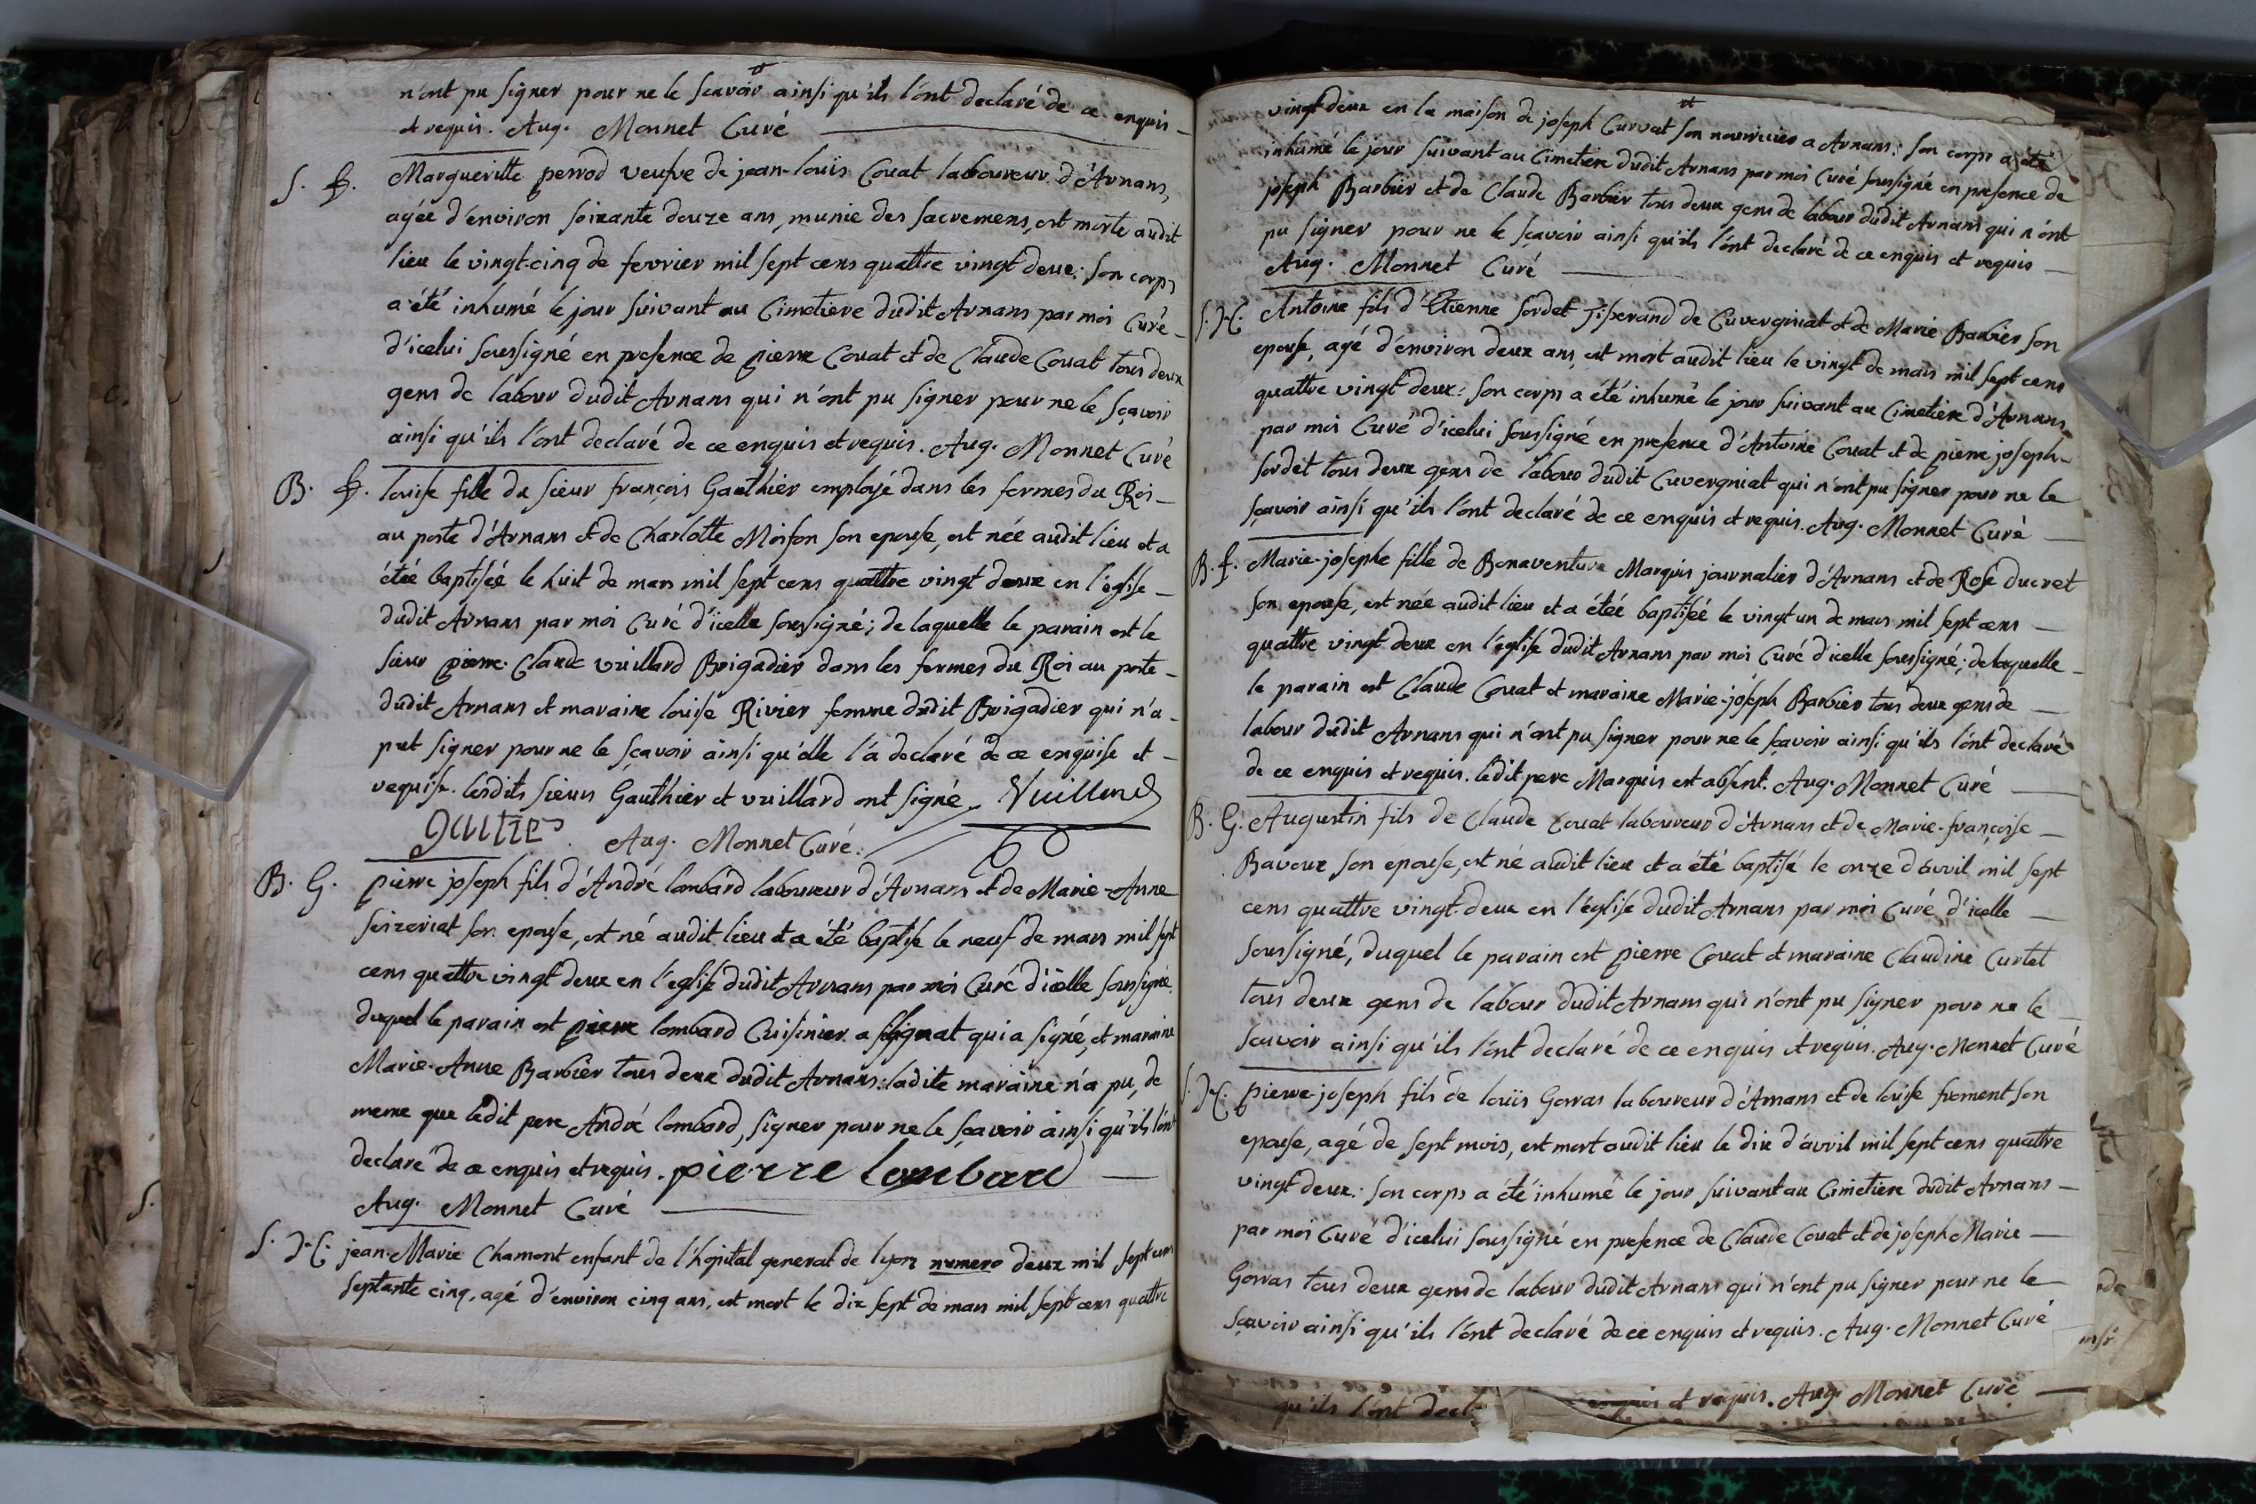 n'ont pu signer pour ne le scavoir ainsi qu'ils l'ont declaré de ce enquis
et requis. Aug. Monnet Curé
S. f. Margueritte perrod veufve de jean-louis Couat laboureur d'Arnans,
agée d'environ soixante douze ans, munie des sacremens, est morte audit
lieu le vingt-cinq de fevrier mil sept cens quattre vingt deux: son corps
a été inhumé le jour suivant au Cimetiere dudit Arnans par moi Curé
d'icelui soussigné en presence de pierre Couat et de Claude Couat tous deux
gens de labour dudit Arnans qui n'ont pu signer pour ne le sçavoir
ainsi qu'ils l'ont declaré de ce enquis et requis. Aug. Monnet Curé
B. f. louise fille du sieur françois Gauthier employé dans les fermes du Roi
au poste d'Arnans et de Charlotte Moifon son epouse, est née audit lieu et a
étée baptisée le huit de mars mil sept cens quattre vingt deux en l'eglise
dudit Arnans par moi Curé d'icelle soussigné; de laquelle le parain est le
sieur pierre-Claude vuillard Brigadier dans les fermes du Roi au poste
dudit Arnans et maraine louise Rivier femme dudit Brigadier qui n'a
put signer pour ne le sçavoir ainsi qu'elle l'a declaré de ce enquise et
requise. lesdits sieurs Gauthier et vuillard ont signé. Vuillard
gautier Aug. Monnet Curé.
B. G. pierre joseph fils d'André lombard laboureur d'Arnans et de Marie-Anne
seizeriat son epouse, est né audit lieu et a été baptisé le neuf de mars mil sept
cens quattre vingt deux en l'eglise dudit Arnans par moi Curé d'icelle soussigné.
duquel le parain est pierre lombard Cuisinier a qui a signé, et maraine
Marie-Anne Barbier tous deux dudit Arnans: ladite maraine n'a pu, de
meme que ledit pere André lombard, signer pour ne le sçavoir ainsi qu'ils l'ont
declaré de ce enquis et requis. pierre lombard
Aug. Monnet Curé
S. jean-Marie Chamont enfant de l'hopital general de lyon numero deux mil sept cens
septante cinq, agé d'environ cinq ans, est mort le dix sept de mars mil sept cens quattre
vingt deux en la maison de joseph Curvat son nourricier a Arnans: son corps a été
inhumé le jour suivant au Cimetiere dudit Arnans par moi Curé soussigné en presence de
joseph Barbier et de Claude Barbier tous deux gens de labour dudit Arnans qui n'ont
pu signer pour ne le sçavoir ainsi qu'ils l'ont declaré de ce enquis et requis
Aug. Monnet Curé
S. Antoine fils d'Etienne sordet Tisserand de Cuvergniat et de Marie Barbier son
epouse, agé d'environ deux ans, est mort audit lieu le vingt de mars mil sept cens
quattre vingt deux: son corps a été inhumé le jour suivant au Cimetiere d'Arnans
par moi Curé d'icelui soussigné en presence d'Antoine Couat et de pierre joseph
sordet tous deux gens de labour dudit Cuvergniat qui n'ont pu signer pour ne le
sçavoir ainsi qu'ils l'ont declaré de ce enquis et requis. Aug. Monnet Curé
B. f. Marie-josephe fille de Bonaventure Marquis journalier d'Arnans et de Rose ducret
son epouse, est née audit lieu et a étée baptisée le vingt un de mars mil sept cens
quattre vingt deux en l'eglise dudit Arnans par moi Curé d'icelle soussigné; de laquelle
le parain est Claude Couat et maraine Marie-joseph Barbier tous deux gens de
labour dudit Arnans qui n'ont pu signer pour ne le sçavoir ainsi qu'ils l'ont declaré
de ce enquis et requis. ledit pere Marquis est absent. Aug. Monnet Curé
B. G. Augustin fils de Claude Couat laboureur d'Arnans et de Marie-françoise
Baveux son épouse, est né audit lieu et a été baptisé le onze d'avril mil sept
cens quattre vingt-deux en l'église dudit Arnans par moi Curé d'icelle
soussigné, duquel le parain est pierre Couat et maraine Claudine Curtet
tous deux gens de labour dudit Arnans qui n'ont pu signer pour ne le
scavoir ainsi qu'ils l'ont declaré de ce enquis et requis. Aug. Monnet Curé
S. pierre-joseph fils de louis Gorras laboureur d'Arnans et de louise froment son
epouse, agé de sept mois, est mort audit lieu le dix d'avril mil sept cens quattre
vingt deux: son corps a été inhumé le jour suivant au Cimetiere dudit Arnans
par moi Curé d'icelui soussigné en presence de Claude Couat et de joseph Marie
Gorras tous deux gens de labour dudit Arnans qui n'ont pu signer pour ne le
sçavoir ainsi qu'ils l'ont declaré de ce enquis et requis. Aug. Monnet Curé
qu'ils l'ont decl enquis et requis. Aug. Monnet Curé